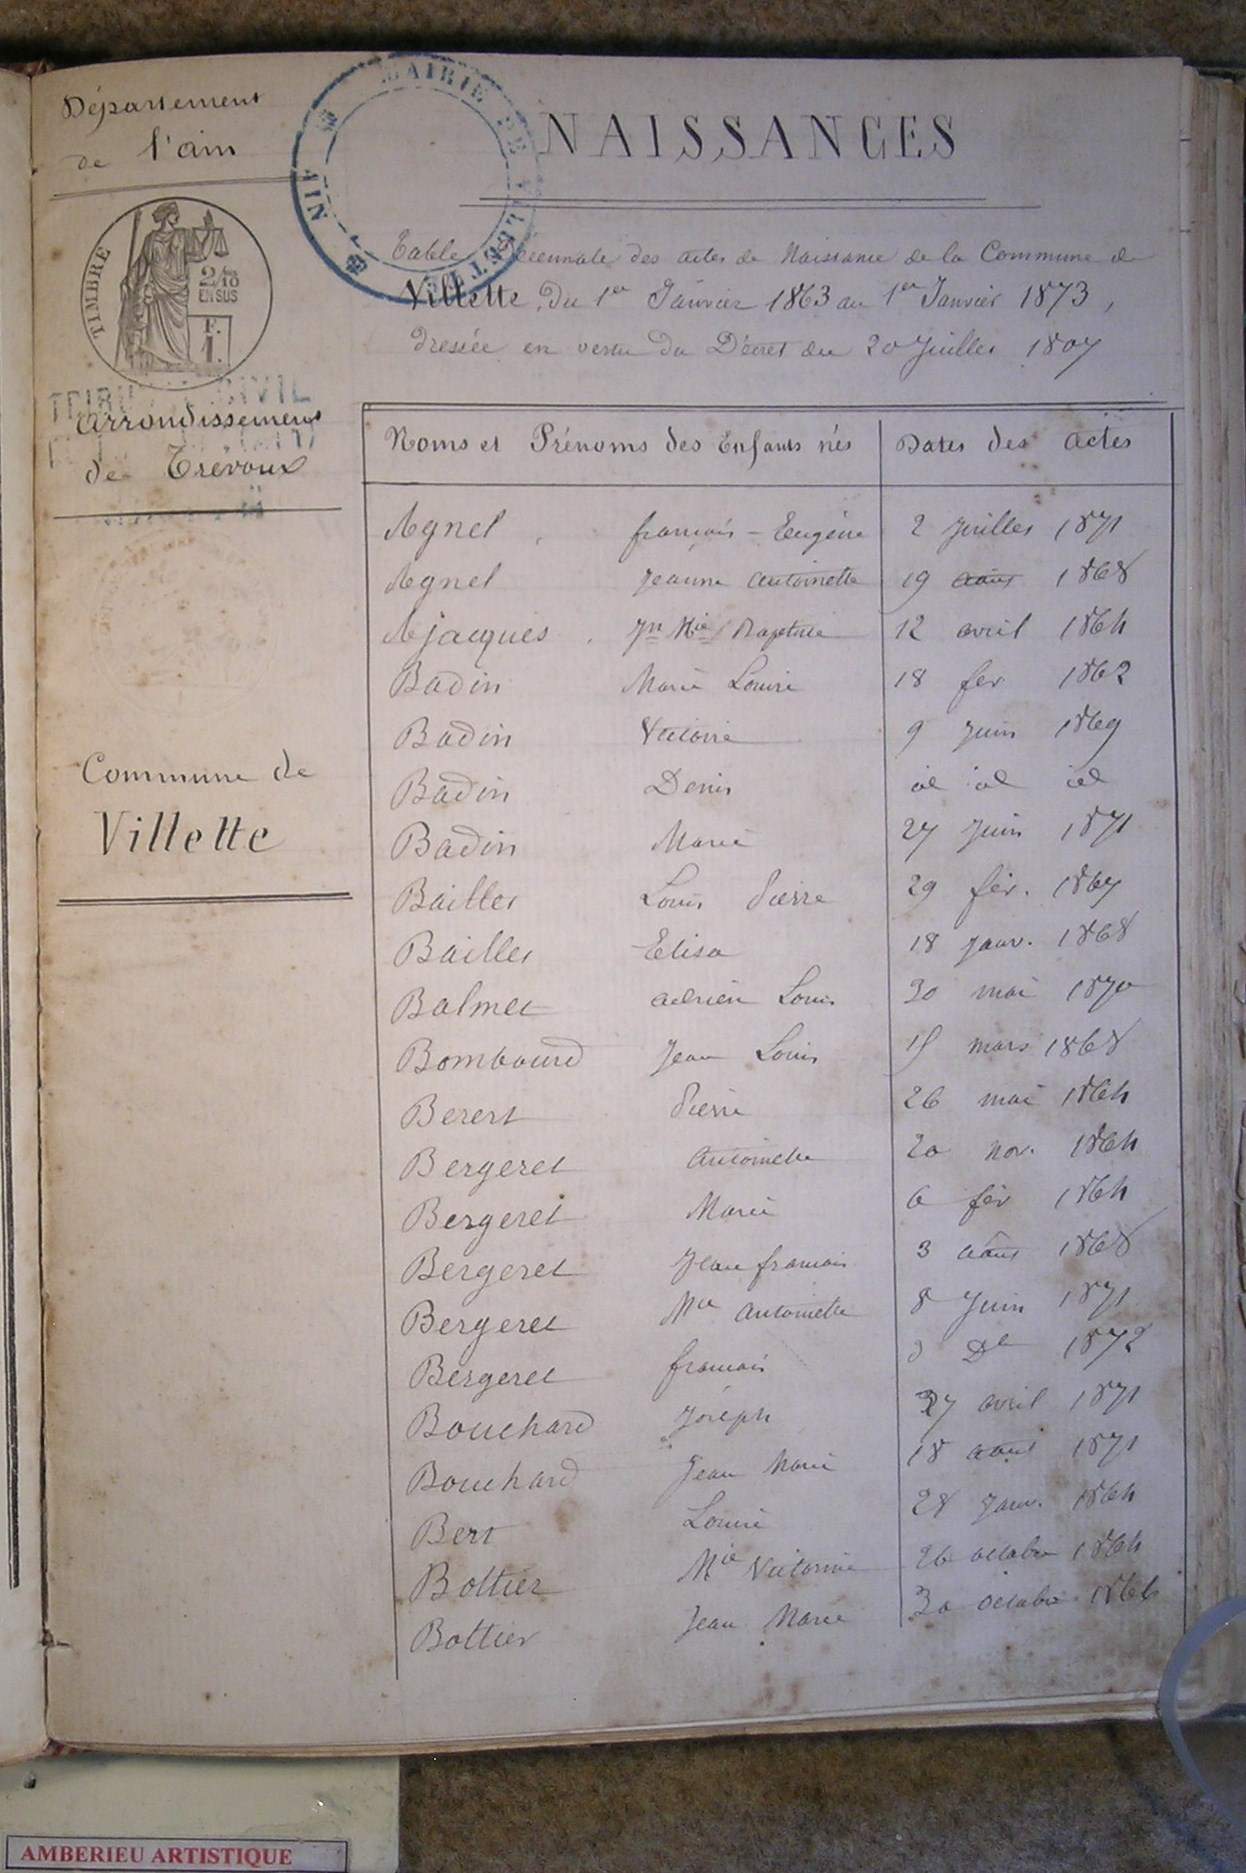 Département
de l'ain
MAIRIE DE VILLETTE
AIN
NAISSANCES
TIMBRE
2/10
EN SUS
F.
1.
Table Décennale des actes de Naissance de la Commune de
Villette, du 1er Janvier 1863 au 1er Janvier 1873,
dressée en vertu du Décret du 20 Juillet 1807
CIVIL
arrondissement
de Trévoux
Commune de
Villette
Noms et Prénoms des Enfants nés Dates des actes
Agnel françois - Eugène 2 Juillet 1871
Agnel Jeanne antoinette 19 août 1868
Ajacques Jn Mie Baptiste 12 avril 1864
Badin Marie Louise 18 fév 1862
Badin Victoire 9 Juin 1869
Badin Denis id id id
Badin Marie 27 Juin 1871
Baillet Louis Pierre 29 fév. 1867
Baillet Elisa 18 janv. 1868
Balmet adrien Louis 30 mai 1870
Bombourd Jean Louis 15 mars 1868
Berert Pierre 26 mai 1864
Bergeret antoinette 20 nov. 1864
Bergeret Marie 6 fév 1864
Bergeret Jean françois 3 août 1868
Bergeret Mie antoinette 8 Juin 1871
Bergeret françois De 1872
Bouchard Joseph 27 avril 1871
Bouchard Jean Marie 18 août 1871
Bert Louise 28 Janv. 1864
Bottier Mie Victorine 26 octobre 1864
Bottier Jean Marie 30 octobre 1866
AMBERIEU ARTISTIQUE